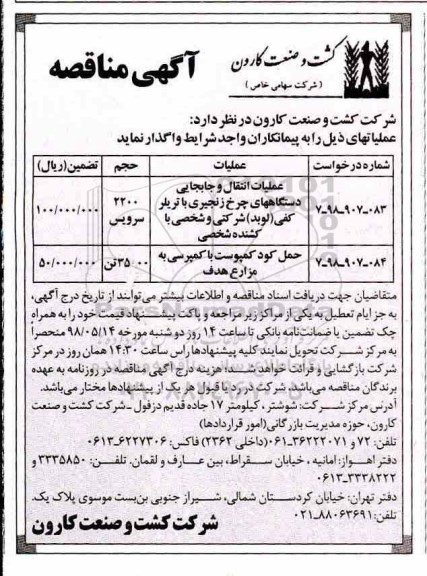 کشت و صنعت کارون
( شرکت سهامی خاص )
آگهی مناقصه
شرکت کشت و صنعت کارون در نظر دارد:
عملیاتهای ذیل را به پیمانکاران واجد شرایط واگذار نماید
شماره درخواست عملیات حجم تضمین(ریال)
۷-۹۸-۹۰۷-۰۸۳ عملیات انتقال و جابجایی دستگاههای چرخ زنجیری با تریلر کفی (لوبد) شرکتی و شخصی با کشنده شخصی ۲۲۰۰ سرویس ۱۰۰/۰۰۰/۰۰۰
۷-۹۸-۹۰۷-۰۸۴ حمل کود کمپوست با کمپرسی به مزارع هدف ۳۵۰۰۰تن ۵۰/۰۰۰/۰۰۰
متقاضیان جهت دریافت اسناد مناقصه و اطلاعات بیشتر می‌توانند از تاریخ درج آگهی،
به جز ایام تعطیل به یکی از مراکز زیر مراجعه و پاکت پیشنهاد قیمت خود را به همراه
چک تضمین یا ضمانت‌نامه بانکی تا ساعت ۱۴ روز دو شنبه مورخه ۹۸/۰۵/۱۴ منحصراً
به مرکز شرکت تحویل نمایند کلیه پیشنهادها راس ساعت ۱۴:۳۰ همان روز در مرکز
شرکت بازگشایی و قرائت خواهد شد؛ هزینه درج آگهی مناقصه در روزنامه به عهده
برندگان مناقصه می‌باشد، شرکت در رد یا قبول هر یک از پیشنهادها مختار می‌باشد.
آدرس مرکز شرکت: شوشتر ، کیلومتر ۱۷ جاده قدیم دزفول -شرکت کشت و صنعت
کارون، حوزه مدیریت بازرگانی(امور قراردادها)
تلفن: ۷۲ و ۳۶۲۲۲۰۷۱-۰۶۱(داخلی ۲۳۶۲) فاکس: ۶۲۲۷۳۰۶-۰۶۱۳
دفتر اهواز: امانیه ، خیابان سقراط، بین عارف و لقمان. تلفن: ۳۳۳۵۸۵۰ و
۳۳۳۸۲۲۲-۰۶۱۳
دفتر تهران: خیابان کردستان شمالی، شیراز جنوبی بن‌بست موسوی پلاک یک.
تلفن: ۸۸۰۶۳۶۹۱-۰۲۱
شرکت کشت و صنعت کارون